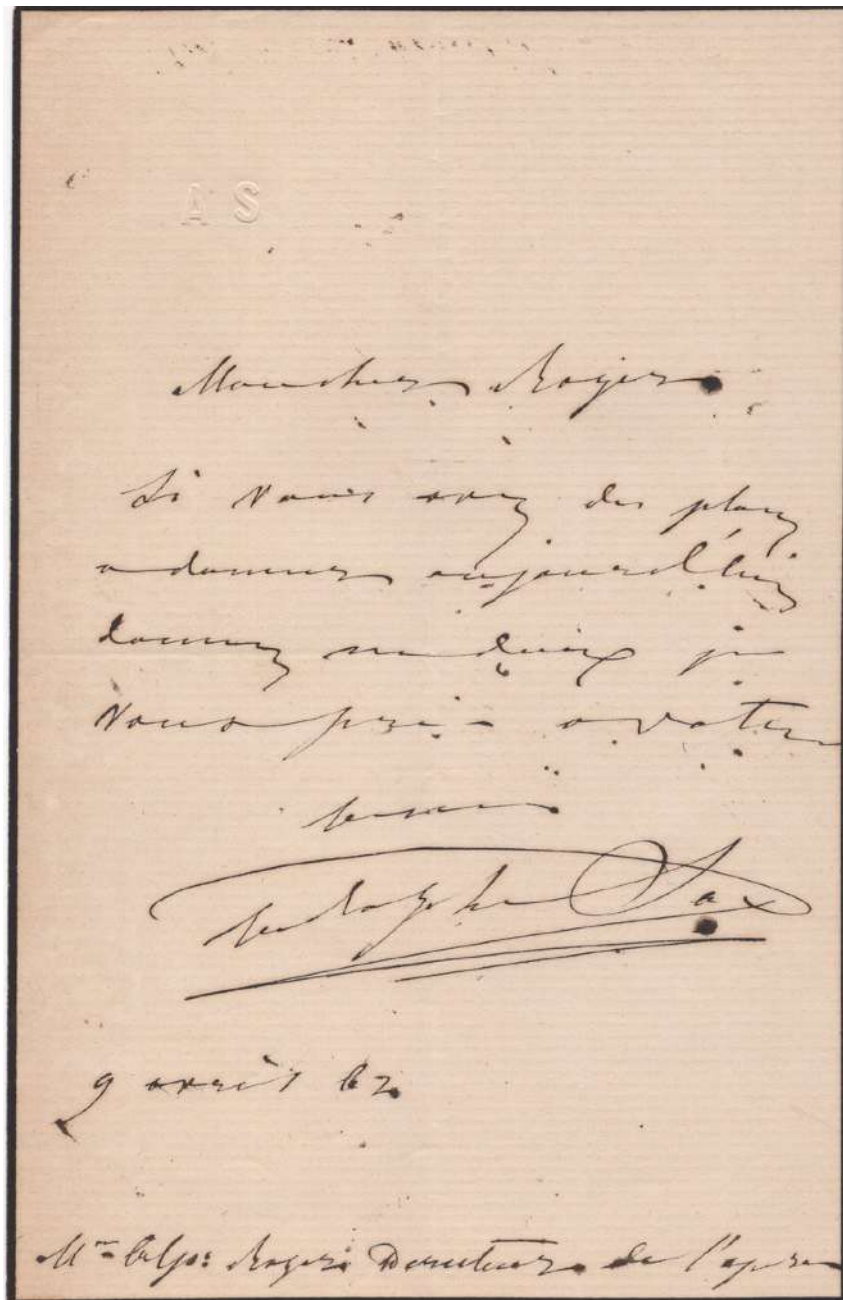 A S
Mon cher Royer
Si vous avez des places
a donner aujourd'hui
donnez m'en deux je
vous prie a votre
ami
Adolphe Sax
9 avril 62
Mr Alp: Royer Directeur de l'opera